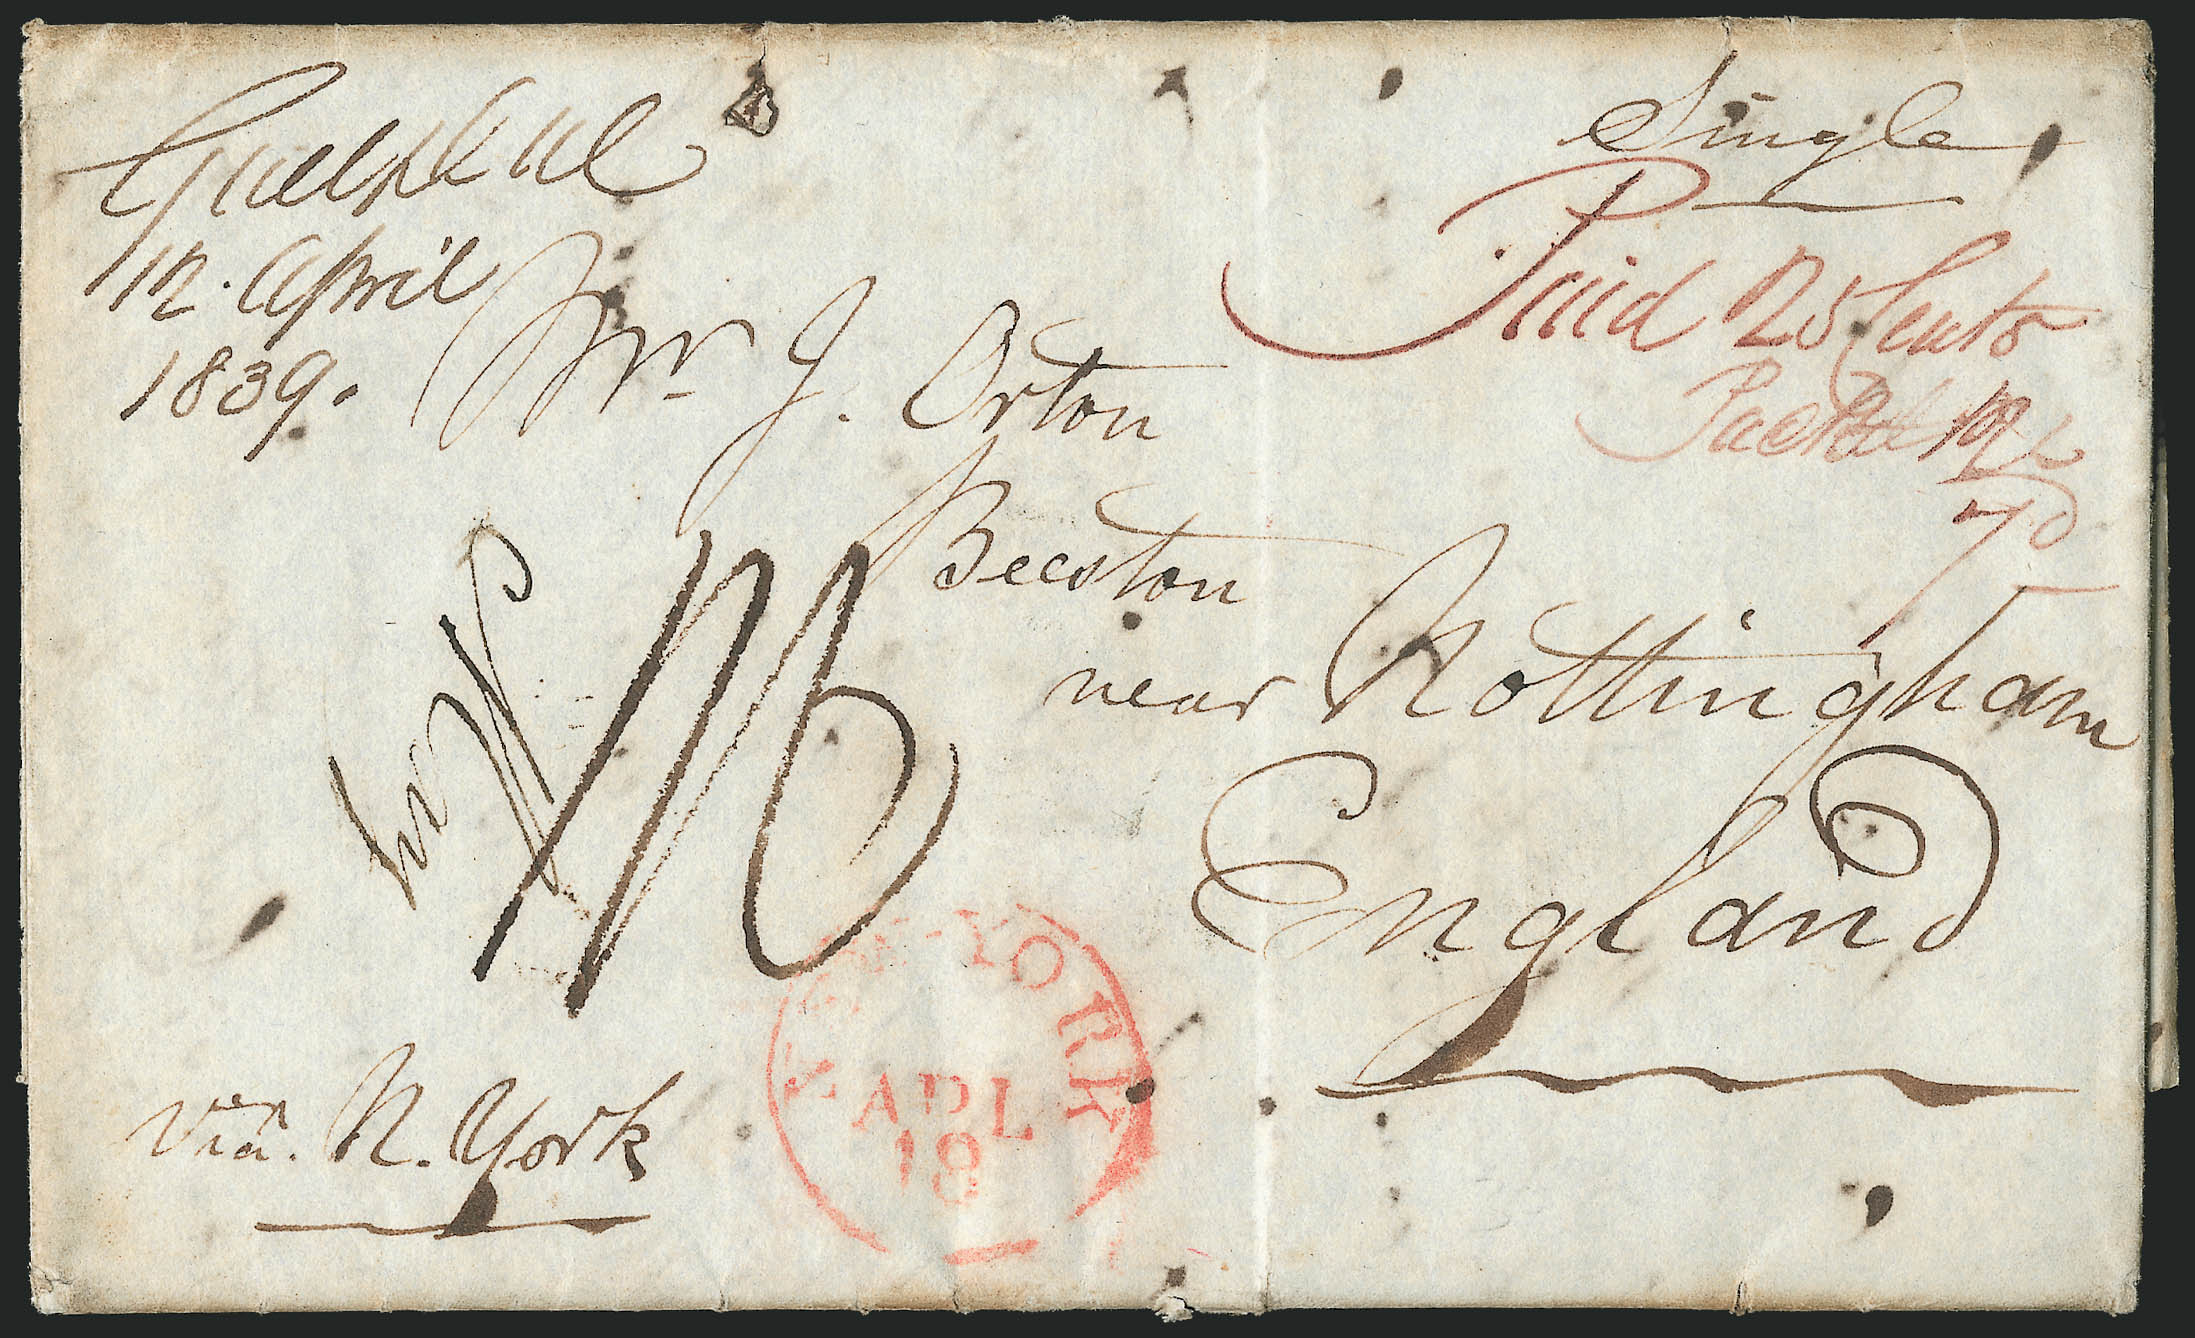 Guelph UC
12 April
1839.
Single
Paid 25 Cents
Packet
7D
Mr J. Orton
Beeston
near Nottingham
England
1/
NEW-YORK
APL
18
via. N. York